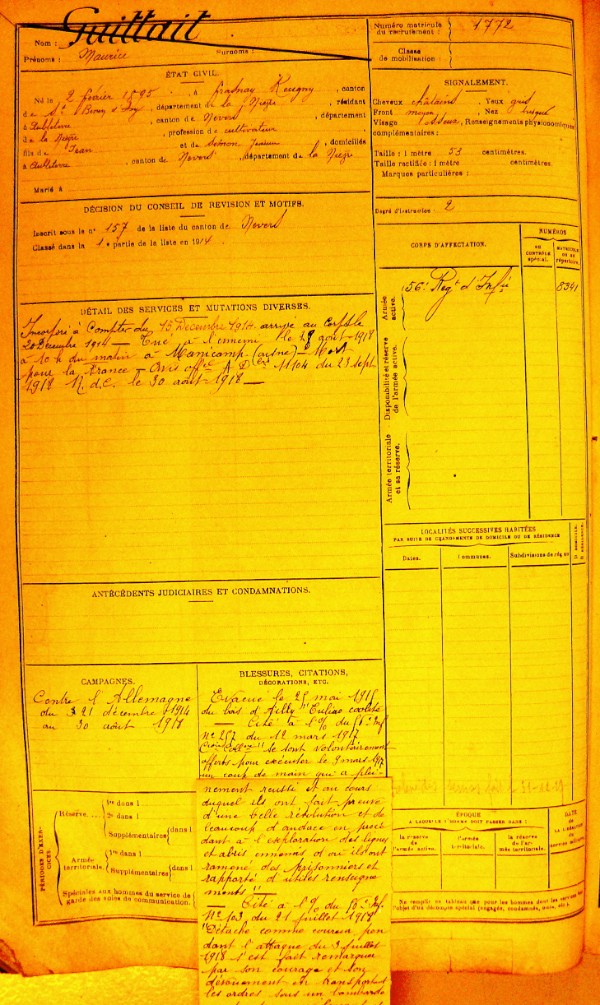 Guittait
Nom :
Prénoms : Maurice Surnoms :
Numéro matricule du recrutement : 1772
Classe de mobilisation :
ÉTAT CIVIL.
Né le 2 février 1895, à canton
de St Benin d'Azy, département de la Nièvre, résidant
à canton de Nevers, département
de la Nièvre, profession de cultivateur
fils de Jean et de domiciliés
à canton de Nevers, département de la Nièvre
Marié à
SIGNALEMENT.
Cheveux châtains Yeux gris
Front moyen Nez
Visage Renseignements physionomiques
complémentaires :
Taille : 1 mètre 53 centimètres.
Taille rectifiée : 1 mètre centimètres.
Marques particulières :
Degré d'instruction : 2
DÉCISION DU CONSEIL DE REVISION ET MOTIFS.
Inscrit sous le n° 157 de la liste du canton de Nevers
Classé dans la 1e partie de la liste en 1914
CORPS D'AFFECTATION.
NUMÉROS
AU CONTRÔLE SPÉCIAL.
MATRICULE OU AU RÉPERTOIRE.
Armée active.
56e Regt d'Infie
8341
Disponibilité et réserve de l'armée active.
Armée territoriale et sa réserve.
DÉTAIL DES SERVICES ET MUTATIONS DIVERSES.
Incorporé à Compter du 15 Décembre 1914 arrivé au Corps le
20 Décembre 1914 — Tué à l'ennemi le août 1918
à 10 h du matin à Manicamp (aisne) Mort
pour la France — Avis offel A D 11104 du 23 sept
1918 R.d.C. le 30 août 1918 —
LOCALITÉS SUCCESSIVES HABITÉES
PAR SUITE DE CHANGEMENTS DE DOMICILE OU DE RÉSIDENCE
Dates. Communes. Subdivisions de région
ANTÉCÉDENTS JUDICIAIRES ET CONDAMNATIONS.
CAMPAGNES.
Contre l'Allemagne
du 21 décembre 1914
au 30 août 1918
BLESSURES, CITATIONS,
DÉCORATIONS, ETC.
Évacué le mai 1915
du bois d'Ailly
— Cité à l'O/ du 56e Inf
N° 257 du 12 mars 1917
se sont volontairement
offerts pour exécuter le 9 mars 1917
un coup de main qui a plei-
nement réussi et au cours
duquel ils ont fait preuve
d'une belle résolution et de
beaucoup d'audace en procé
dant à l'exploration des lignes
et abris ennemis d'où ils ont
ramené des prisonniers et
rapporté d'utiles renseigne
ments" —
— Cité à l'O/ du 56e Inf.
N° 103 du 21 juillet 1918
"Détaché comme coureur pen
dant l'attaque du juillet
1918 s'est fait remarquer
par son courage et son
dévouement en transportant
les ordres sous un bombarde
PÉRIODES D'EXERCICES.
Réserve
1re dans l
2e dans l
Supplémentaires dans l
Armée territoriale.
1re dans l
Supplémentaires dans l
Spéciales aux hommes du service de
garde des voies de communication.
ÉPOQUE
À LAQUELLE L'HOMME DOIT PASSER DANS :
la réserve de l'armée active.
l'armée territoriale.
la réserve de l'armée territoriale.
DATE